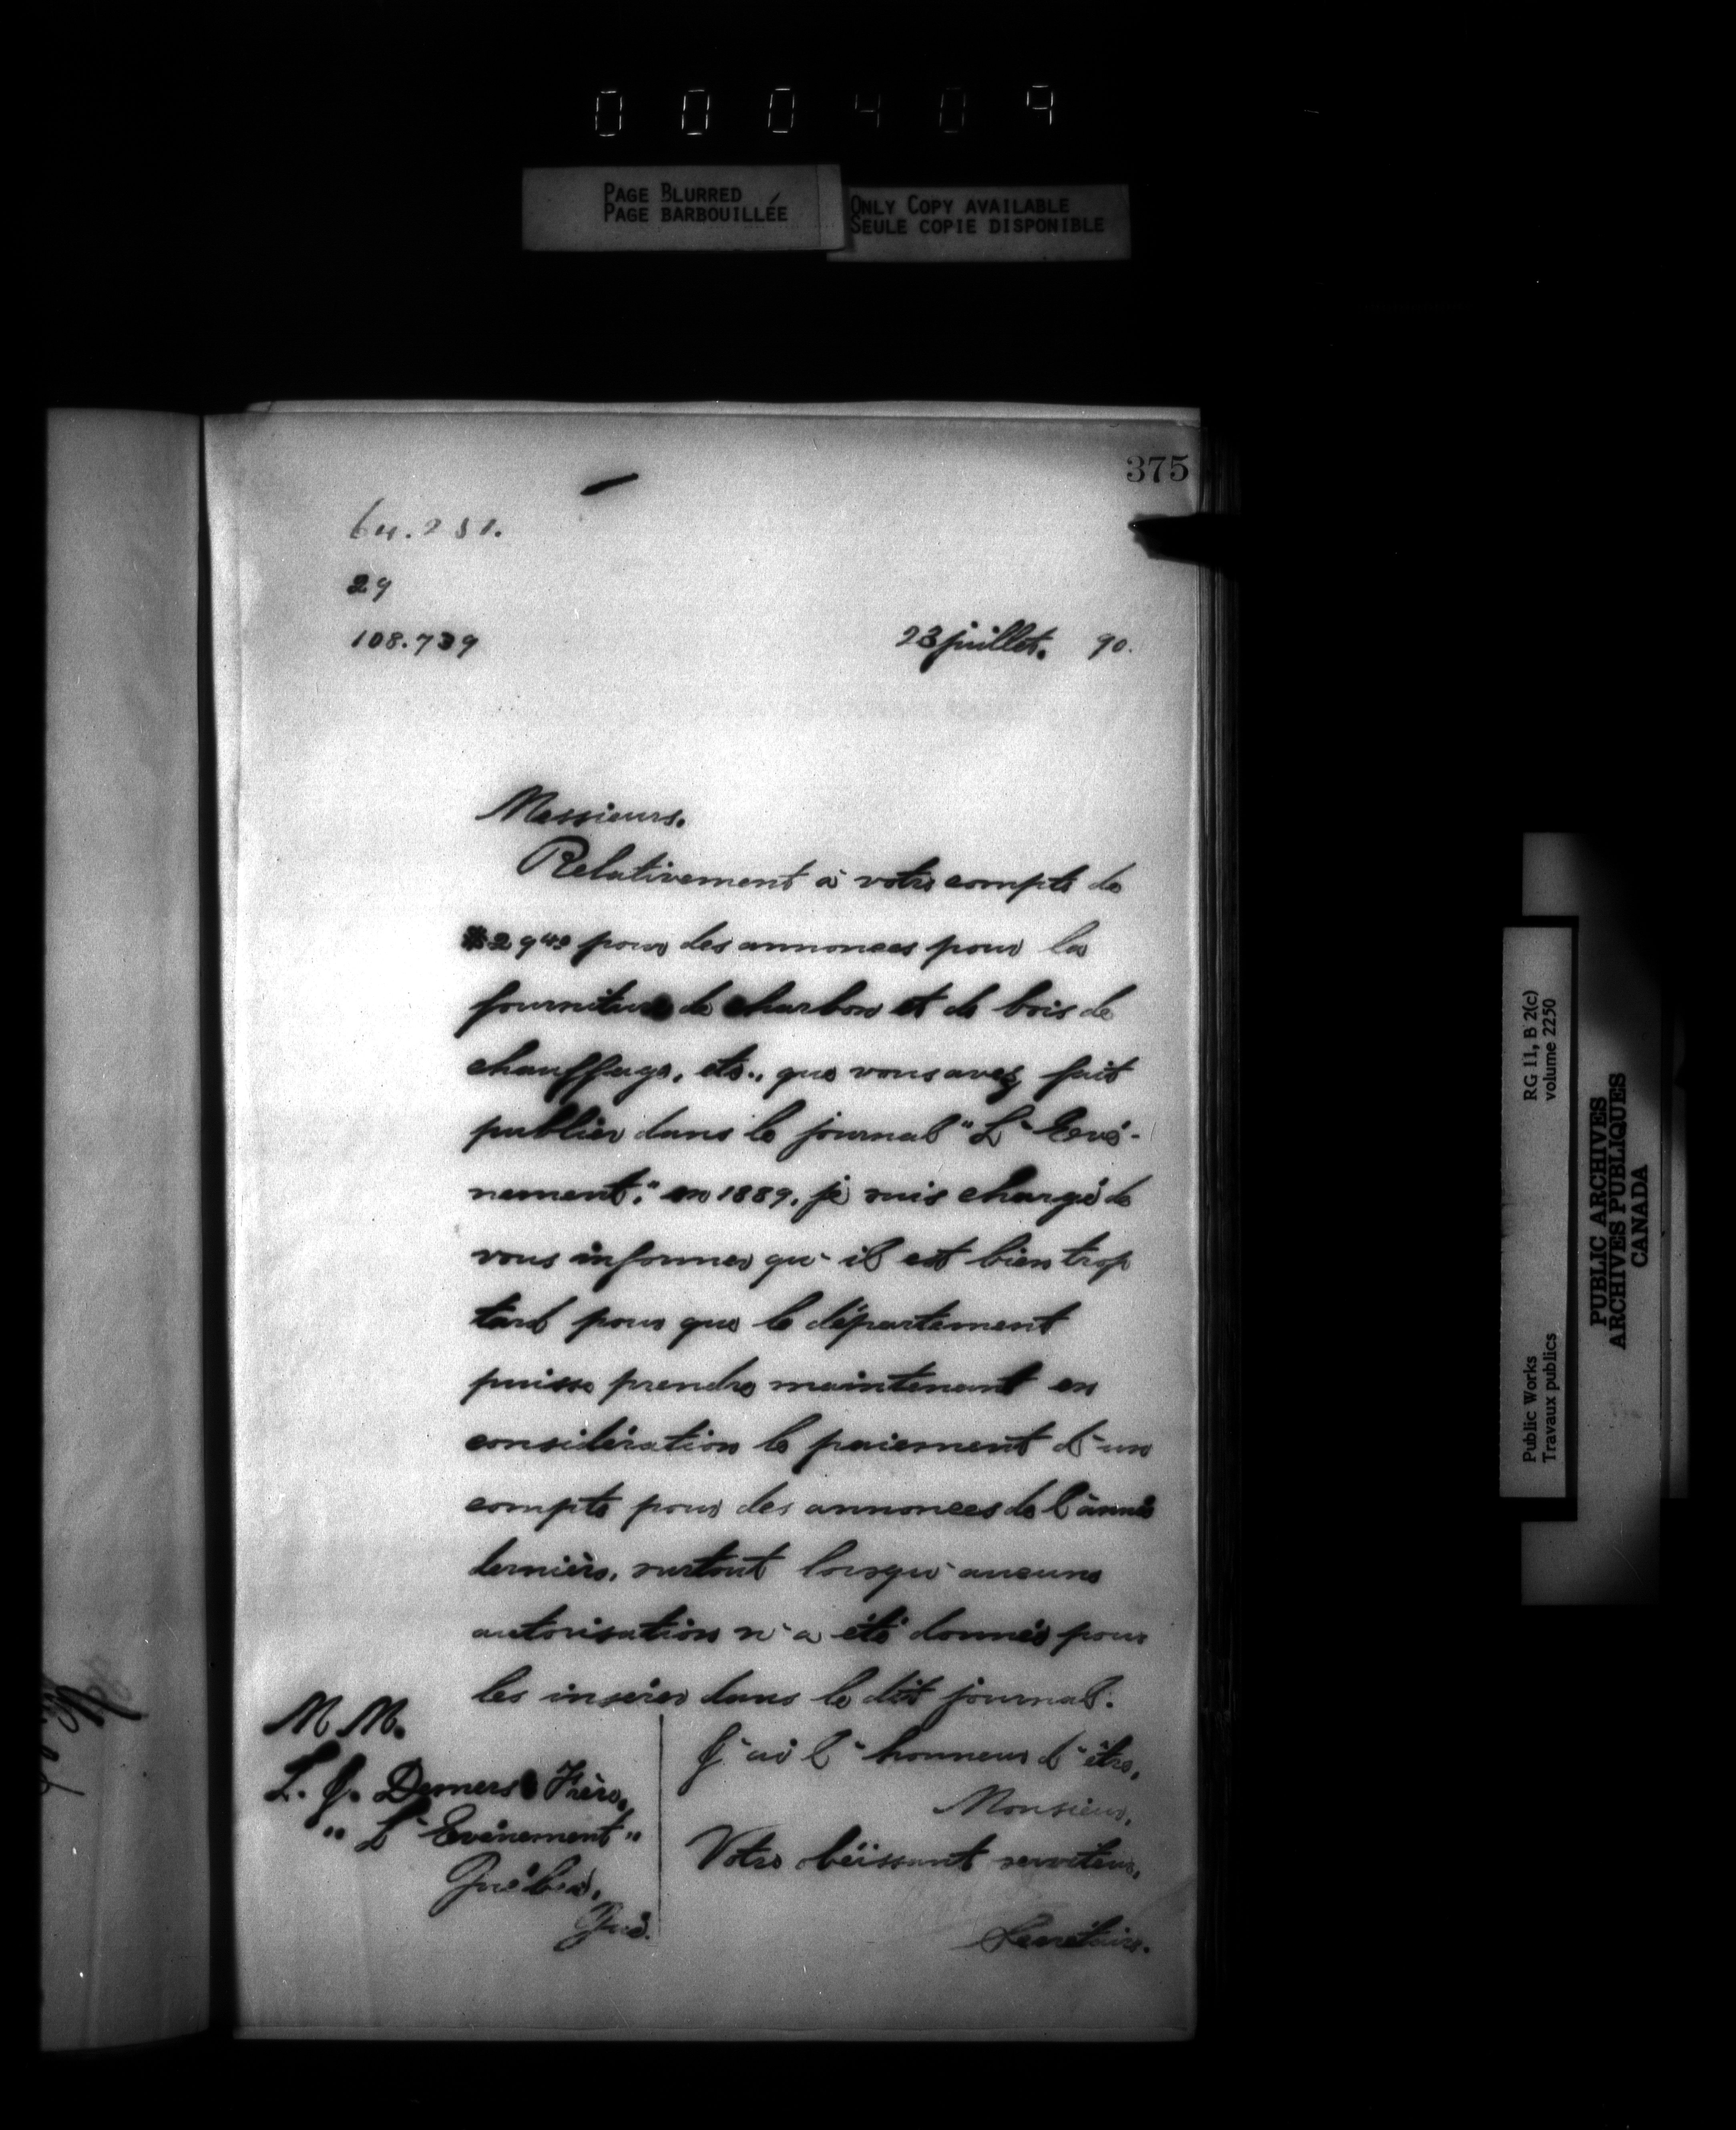 000409
PAGE BLURRED
PAGE BARBOUILLÉE
ONLY COPY AVAILABLE
SEULE COPIE DISPONIBLE
375
29
108.739
23 juillet. 90.
Messieurs.
Relativement à votre compte de
$29 pour des annonces pour la
fourniture de charbon et de bois de
chauffage, etc., que vous avez fait
publier dans le journal "L'Evé-
nement," en 1889, je suis chargé de
vous informer qu'il est bien trop
tard pour que le département
puisse prendre maintenant en
considération le paiement d'un
compte pour des annonces de l'année
dernière, surtout lorsqu'aucune
autorisation n'a été donnée pour
les insérer dans le dit journal.
J'ai l'honneur d'être,
Monsieur,
Votre obéissant serviteur,
Secrétaire.
M M.
L. J. Demers & Frère,
"L'Evénement"
Québec,
Qué.
Public Works
Travaux publics
RG 11, B 2(c)
volume 2250
PUBLIC ARCHIVES
ARCHIVES PUBLIQUES
CANADA